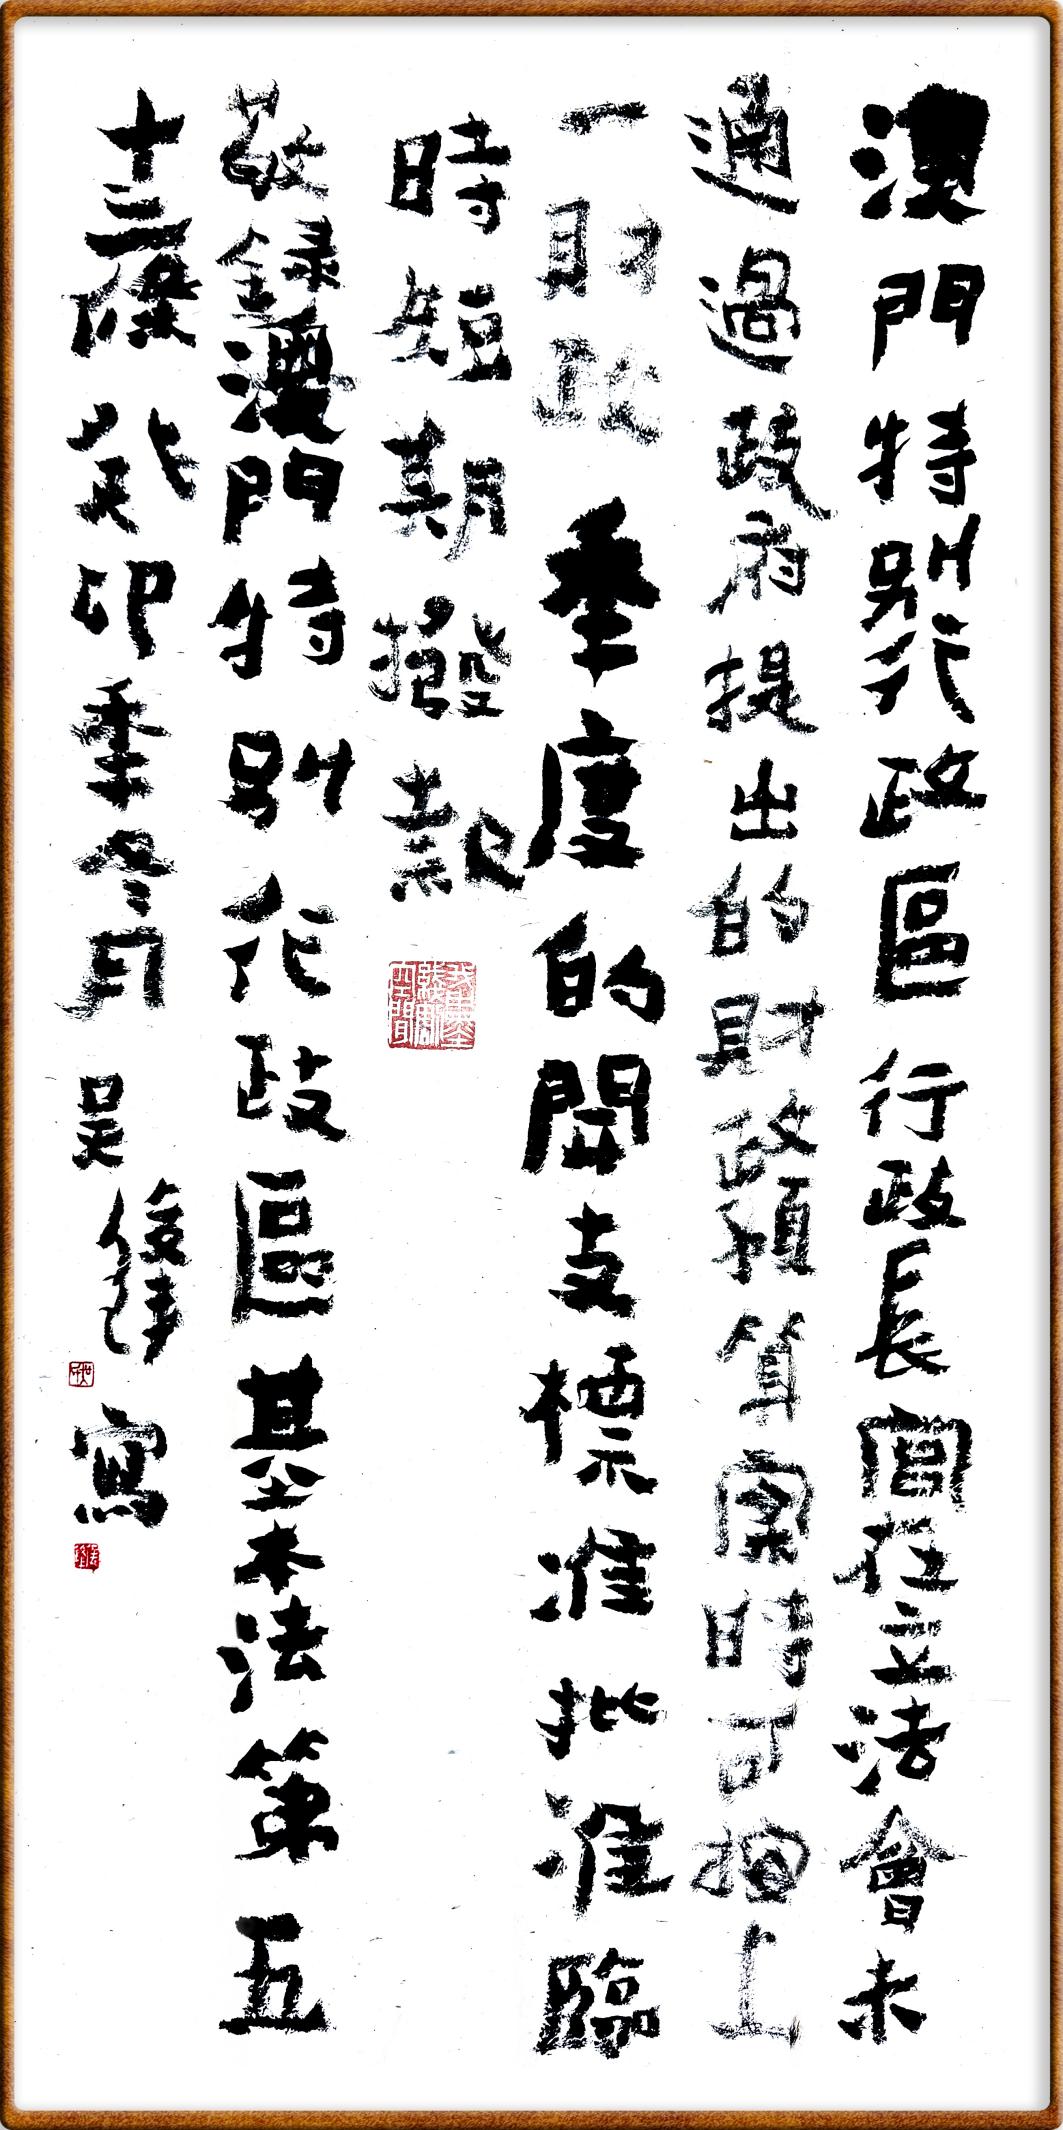 澳門特別行政區行政長官在立法會未
通過政府提出的財政預算案時可按上
一財政秊度的開支標准批准臨
時短期撥款
敬錄澳門特別行政區基本法第五
十三條癸卯秊冬月吳寫